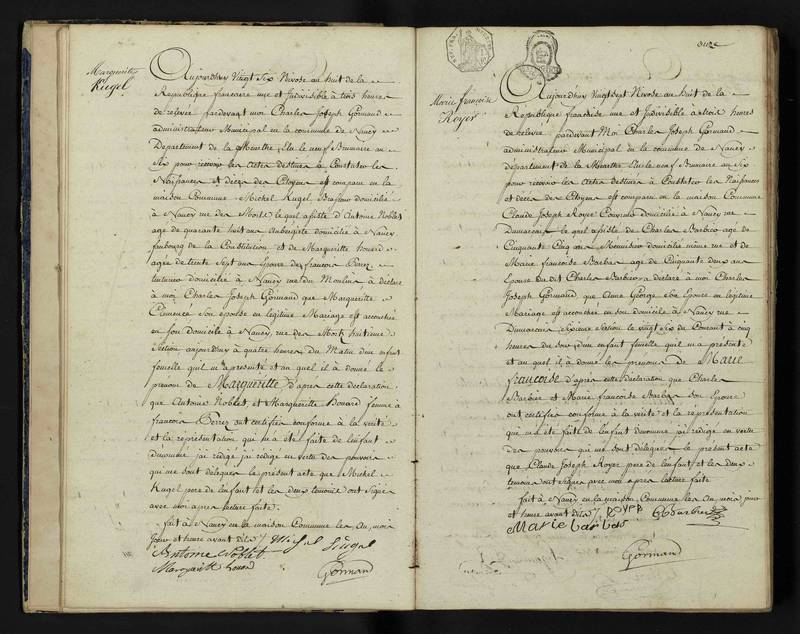 Marguerite
Kugel
Aujourdhuy Vingt Six Nivose an huit de la
Republique francaise une et Indivisible à trois heures
de relevée pardevant moi Charles Joseph Gormand
administrateur Municipal en la commune de Nancy
Departement de la Meurthe Elu le neuf Brumaire an
Six pour recevoir les actes destinés à Constater les
Naissances et décès des Citoyens est comparu en la
maison Commune Michel Kugel Brasseur domicilié
à Nancy rue des Morts lequel assisté d'Antoine Noblet
age de quarante huit ans Aubergiste domicilié à Nancy
faubourg de la Constitution et de Marguerite houard
agée de trente Sept ans Epouse de françois
domicilié à Nancy rue du Moulin à déclaré
à moi Charles Joseph Gormand que Marguerite
Clemence Son epouse en legitime Mariage est accouchée
en son domicile à Nancy, rue des Morts huitieme
Section aujourdhuy à quatre heures du Matin d'un enfant
femelle qu'il m'a presenté et au quel il à donné le
prenom de Marguerite d'apres cette déclaration
que Antoine Noblet, et Marguerite Houard femme à
francois ont certifiés conforme à la verité
et la representation qui m'a été faite de l'enfant
denommé j'ai rédigé j'ai redigé en vertu des pouvoirs
qui me sont delegués le present acte que Michel
Kugel pere de l'enfant et les deux temoins ont Signés
avec moi apres lecture faite.
fait à Nancy en la maison Commune les An, mois
Jour et heure avant dits / Michel Kugel
Antoine Noblet
Marguerite houard
Gormand
onze
Marie françoise
Royer
Aujourdhuy Vingt Sept Nivose an huit de la
République francaise une et Indivisible à trois heures
de relevée pardevant Moi Charles Joseph Gormand
administrateur Municipal en la commune de Nancy
departement de la Meurthe Elu le neuf Brumaire an Six
pour recevoir les actes destinés à Constater les Naissances
et décès des Citoyens est comparu en la maison Commune
Claude Joseph Royer domicilié à Nancy rue
le quel assisté de Charles Barbier age de
Cinquante Cinq ans Menuisier domicilié même rue et de
Marie francoise Barbas age de Cinquante deux ans
Epouse du dit Charles Barbier a déclaré à moi Charles
Joseph Gormand, que Anne George Son Epouse en legitime
Mariage est accouchée en son domicile à Nancy rue
Section le vingt Six du Courant à cinq
heures du Soir d'un enfant femelle qu'il m'a presenté
et au quel il à donné les prenoms de Marie
françoise d'apres cette déclaration que Charles
Barbier et Marie francoise Barbas Son Epouse
ont certifiés conforme à la verité et la representation
qui m'a été faite de l'enfant denommé j'ai rédigé en vertu
des pouvoirs qui me sont delegués le present acte
que Claude Joseph Royer pere de l'enfant et les deux
temoins ont Signés avec moi apres lecture faite
fait à Nancy en la maison Commune les An, mois, jour
et heure avant dits / Royer C Barbier
Marie barbas
Gormand